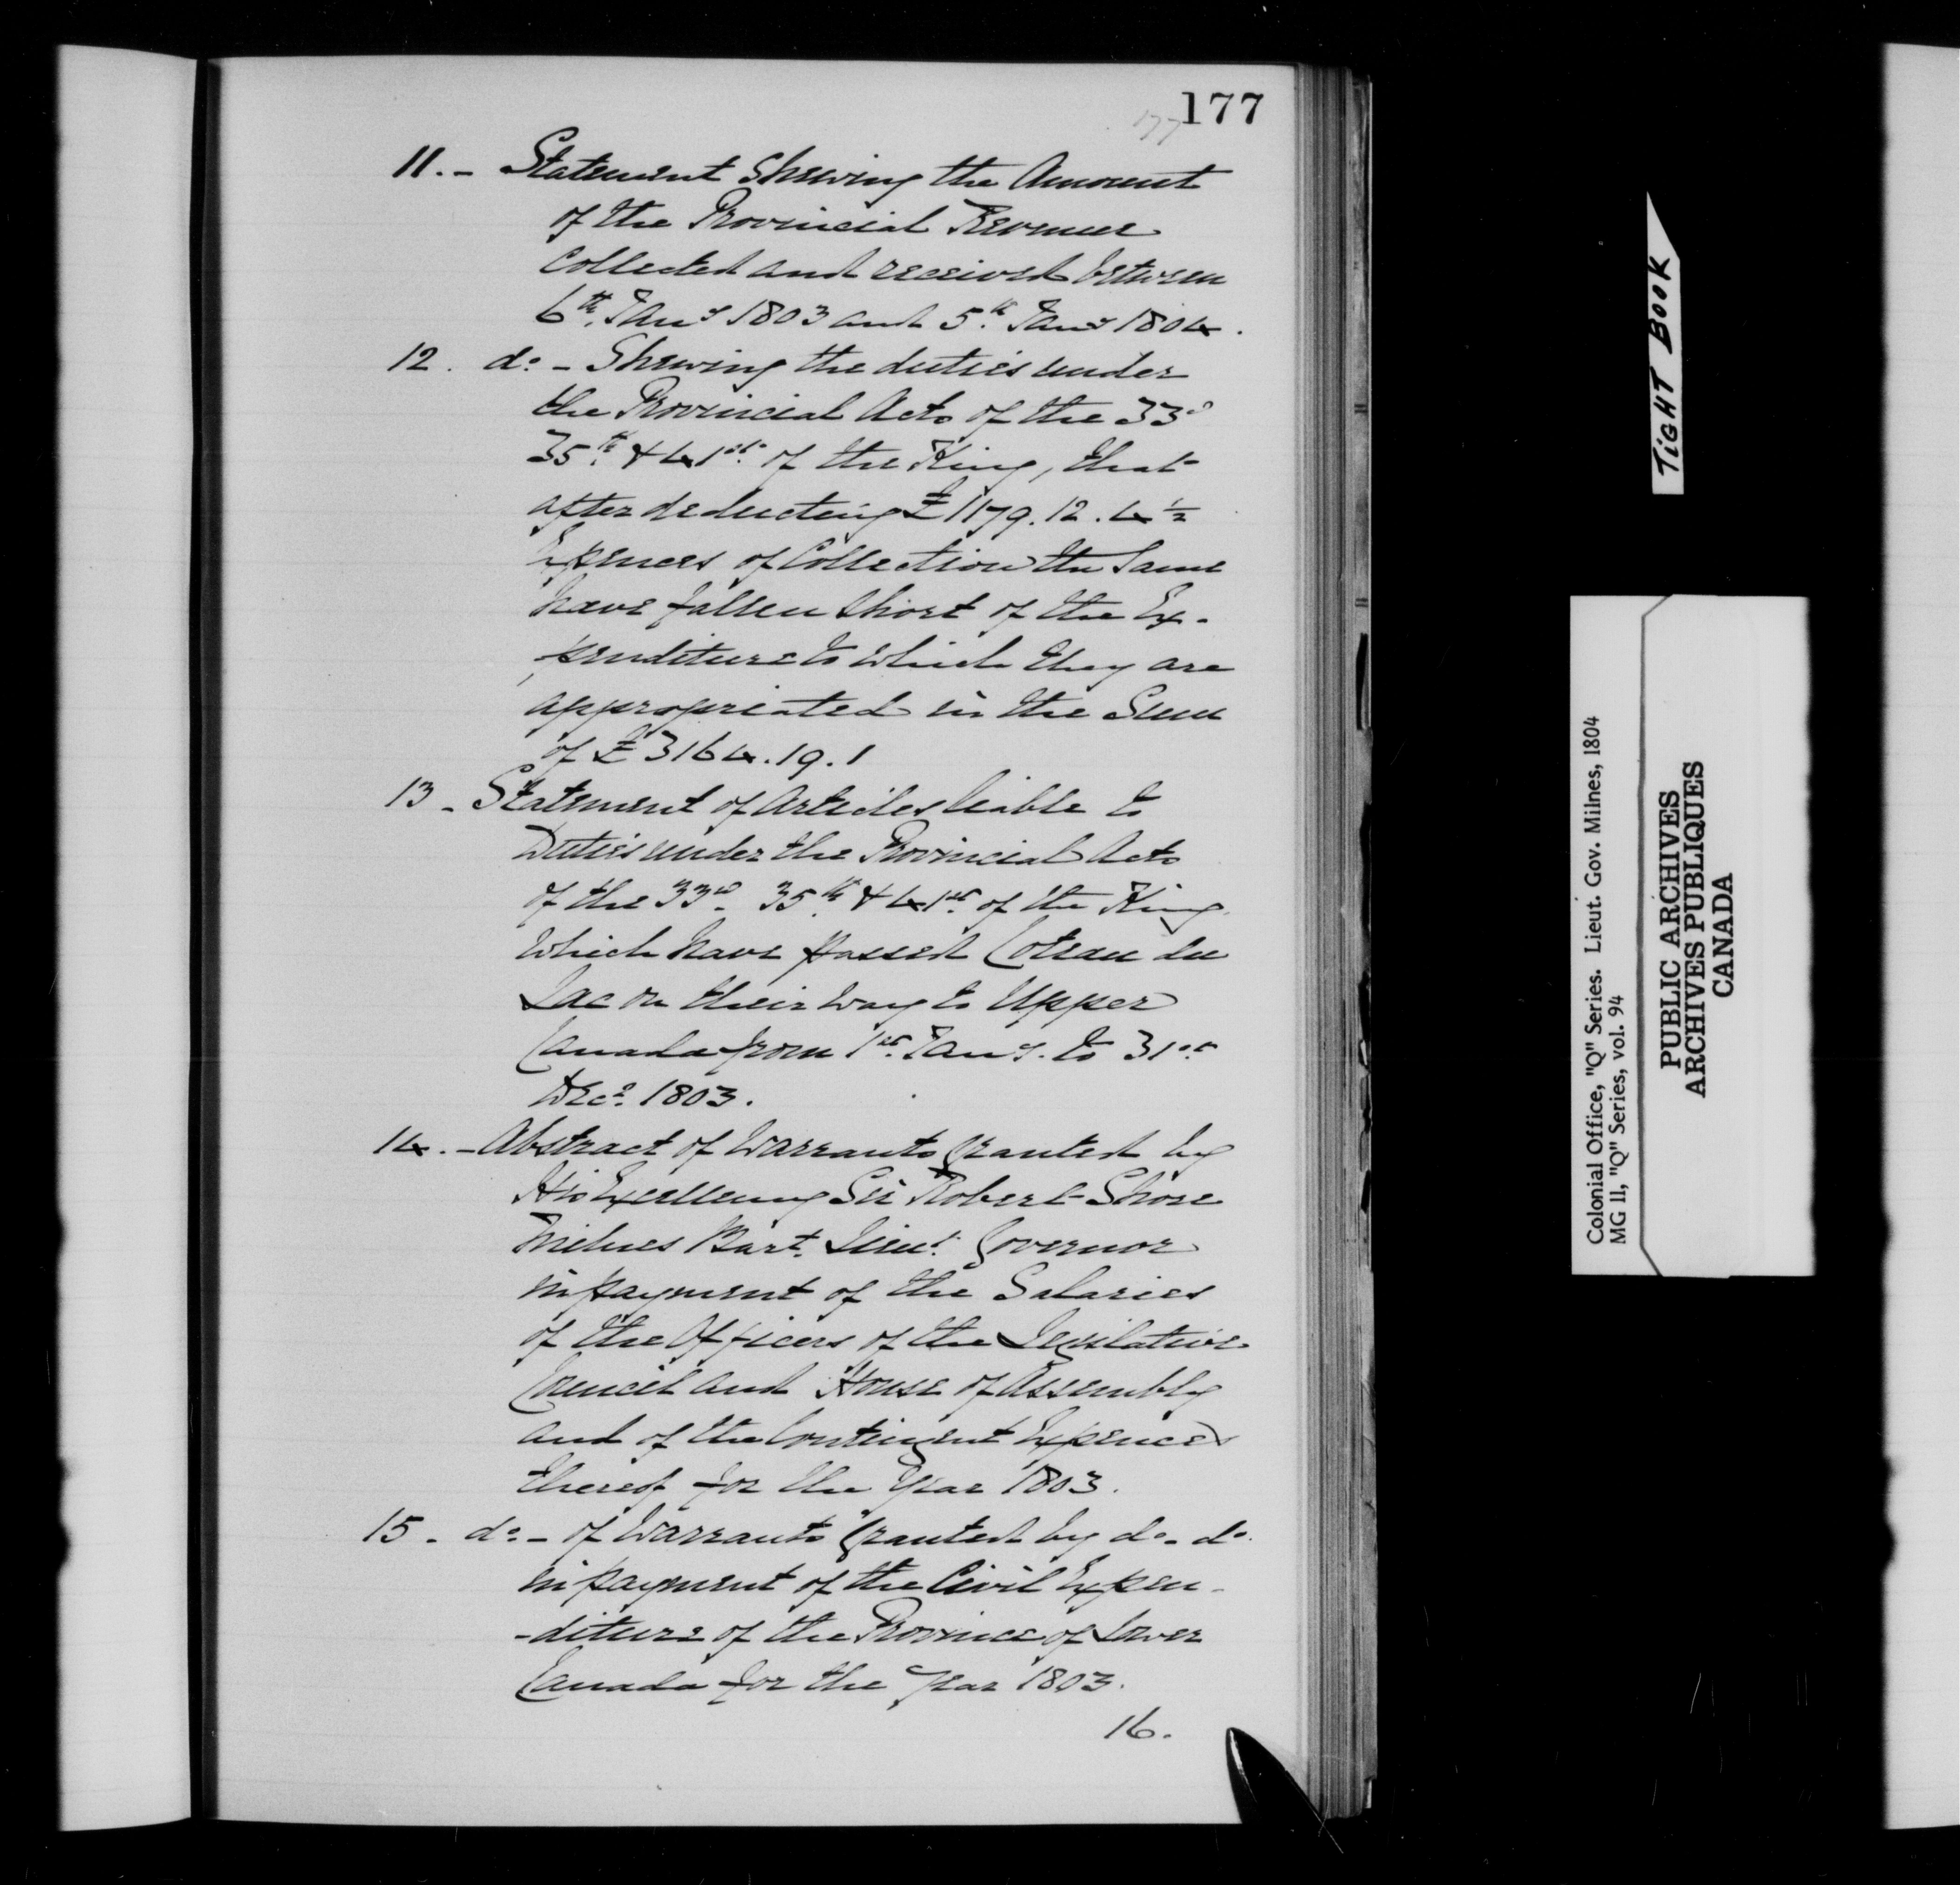 177
177
11. - Statement Shewing the Amount
of the Provincial Revenue
Collected and received between
6th Jany 1803 and 5th Jany 1804.
12. do - Shewing the duties under
the Provincial Acts of the 33d
35th & 41st of the King, that
after deducting £1179.12.4½
Expences of Collection the Same
have fallen Short of the Ex-
penditure to which they are
appropriated in the Sum
of £3164.19.1
13 - Statement of Articles liable to
Duties under the Provincial Acts
of the 33d 35th & 41st of the King
which have passed Coteau du
Lac on their way to Upper
Canada from 1st Jany. to 31st
Decr 1803.
14. - Abstract of Warrants granted by
His Excellency Sir Robert Shore
Milnes Bart. Lieut. Governor
in payment of the Salaries
of the Officers of the Legislative
Council and House of Assembly
and of the Contingent Expences
thereof for the Year 1803.
15 - do - of Warrants granted by do - do
in payment of the Civil Expen-
-diture of the Province of Lower
Canada for the Year 1803.
16.
TIGHT BOOK
Colonial Office, "Q" Series. Lieut. Gov. Milnes, 1804
MG 11, "Q" Series, vol. 94
PUBLIC ARCHIVES
ARCHIVES PUBLIQUES
CANADA